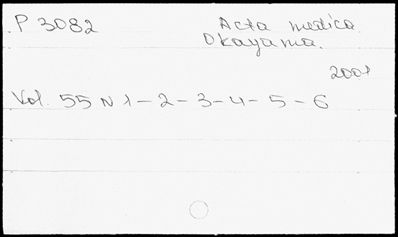 P 3082 Acta medica
Okayama.
2001
Vol. 55 N 1-2-3-4-5-6